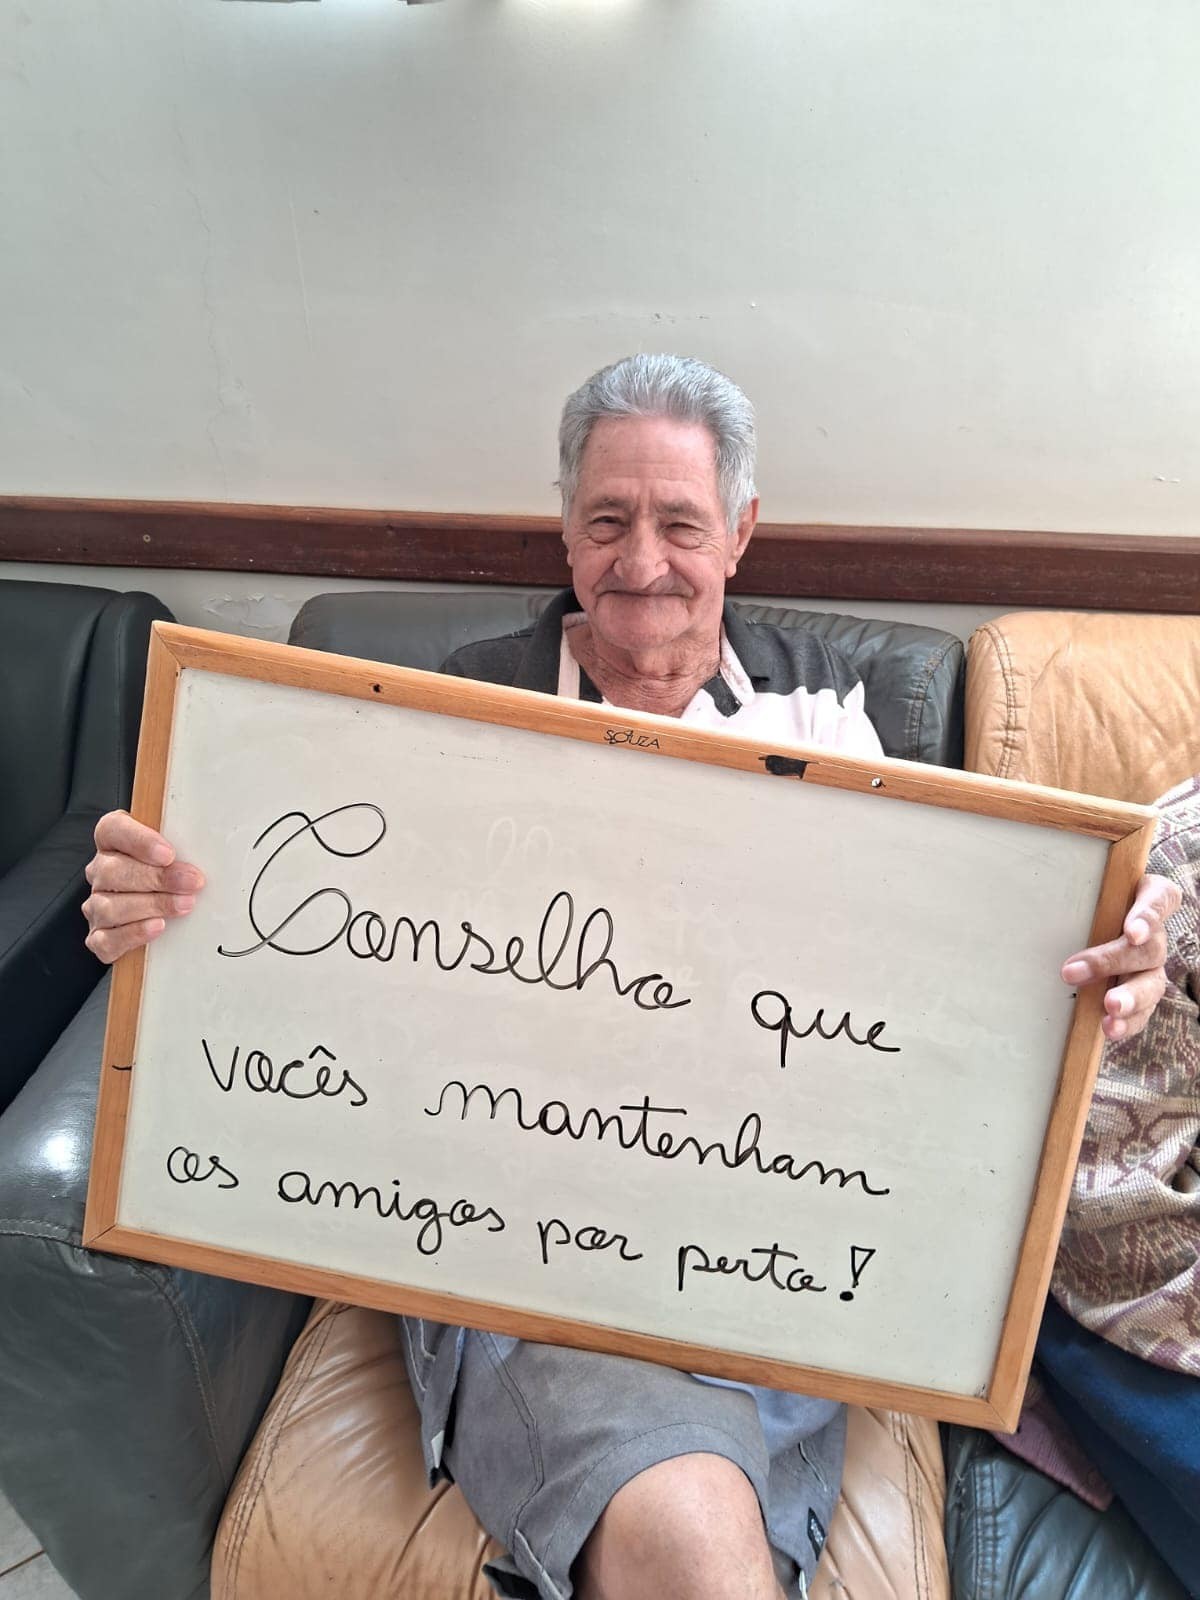 SOUZA
Conselho que
vocês mantenham
os amigos por perto!